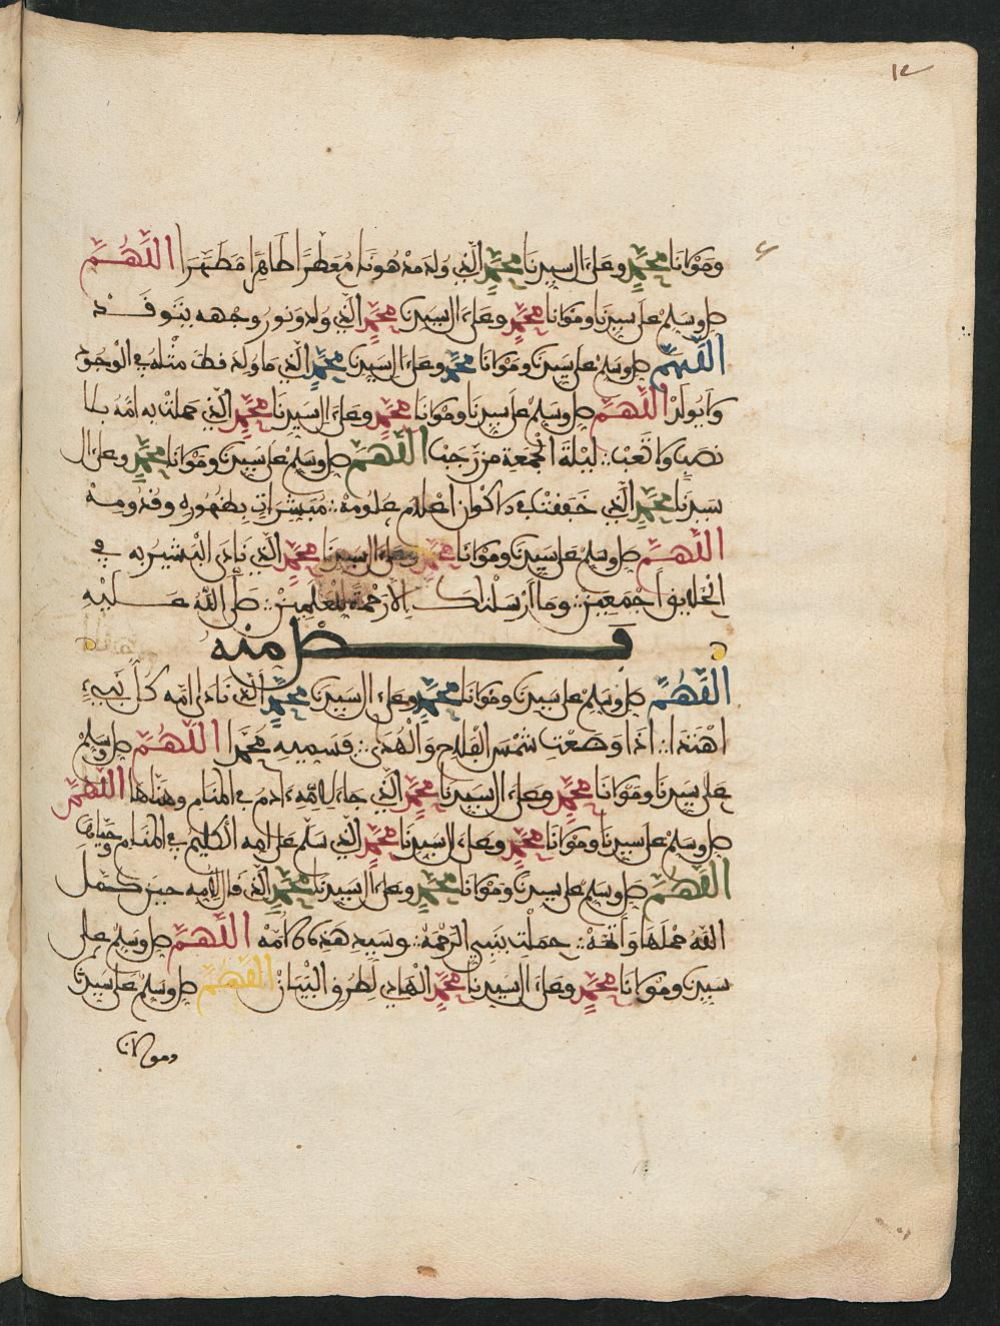 ١٢
ومولانا محمد وعلى ال سيدنا محمد الذي ولد مدهونا معطرا طاهرا مطهرا اللهم
صل وسلم على سيدنا ومولانا محمد وعلى ال سيدنا محمد الذي ولد ونور وجهه يتوقد
اللهم صل وسلم على سيدنا ومولانا محمد وعلى ال سيدنا محمد الذي ما ولد قط مثله في الوجود
ولا يولد اللهم صل وسلم على سيدنا ومولانا محمد وعلى ال سيدنا محمد الذي حملت به امه بلا
نصب ولا تعب ليلة الجمعة من رجب اللهم صل وسلم على سيدنا ومولانا محمد وعلى ال
سيدنا محمد الذي خفقت في الاكوان اعلام علومه مبشرات بظهوره وقدومه
اللهم صل وسلم على سيدنا ومولانا محمد وعلى ال سيدنا محمد الذي نادى البشير به في
الخلايق اجمعين وما ارسلنك الا رحمة للعلمين صلى الله عليه
فصل منه
اللهم صل وسلم على سيدنا ومولانا محمد وعلى ال سيدنا محمد الذي نادى امه كل نبيء
اهتدا اذا وضعت شمس الفلاح والهدى فسميه محمدا اللهم صل وسلم
على سيدنا ومولانا محمد وعلى ال سيدنا محمد الذي جاء لامه ءادم في المنام وهناها اللهم
صل وسلم على سيدنا ومولانا محمد وعلى ال سيدنا محمد الذي سلم على امه الكليم في المنام وحياها
اللهم صل وسلم على سيدنا ومولانا محمد وعلى ال سيدنا محمد الذي قال لامه حين كمل
الله حملها واتمه حملت بنبي الرحمة وسيد هذه الامه اللهم صل وسلم على
سيدنا ومولانا محمد وعلى ال سيدنا محمد الهادي لطرق البيان اللهم صل وسلم على سيدنا
ومولانا